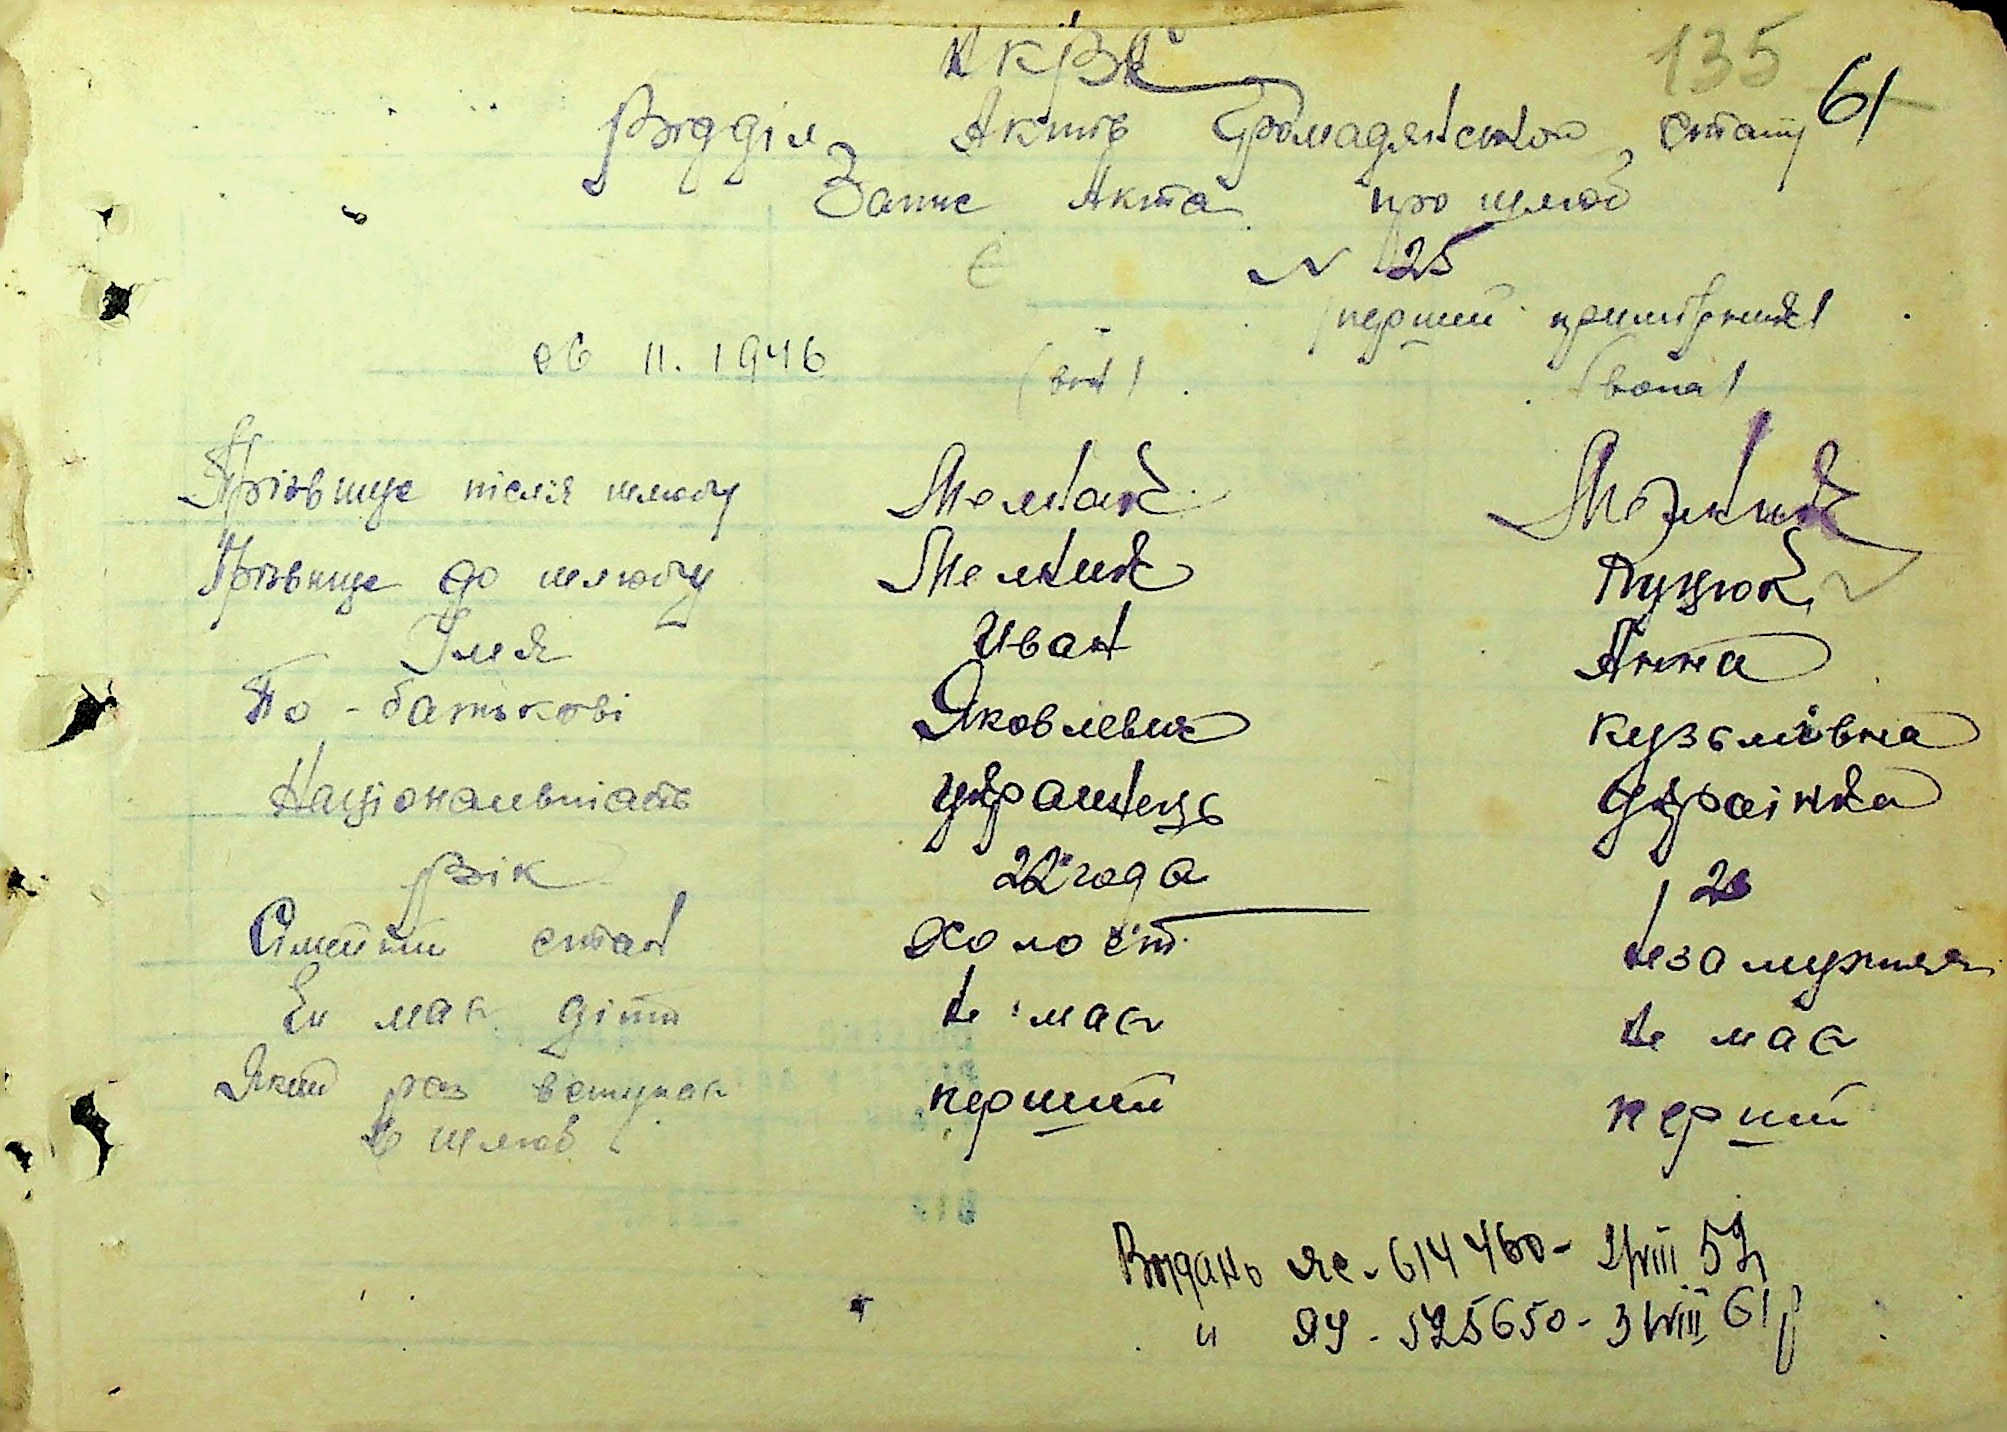 135 61
Відділ Актів Громадянського стану
Запис Акта про шлюб
N 25
перший примірник
06 11. 1946 (він) (вона)
Прізвище після шлюбу Мельник Мельник
Прізвище до шлюбу Мельник Пуцюк
Імя Иван Анна
По-батькові Яковлевич Кузьмівна
Національність українець українка
Вік 22 года
Сімейний стан холост незамужняя
Чи має діти не має не має
Який раз вступає перший перший
в шлюб
Видано ЯС-614460- 2/VIII 52
" ЯЧ-525650-3/VIII 61р